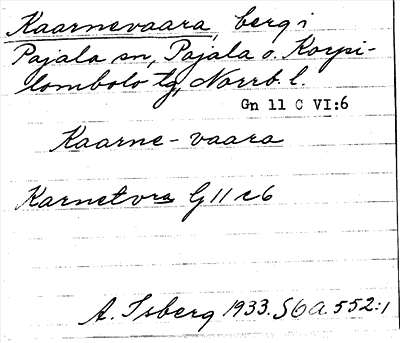 Kaarnevaara, berg i
Pajala sn, Pajala o. Korpi-
lombolo tg, Norrb. l.
Gn 11 C VI:6
Kaarne-vaara
Karnetvra G 11 c 6
A. Isberg 1933. S6a. 552:1